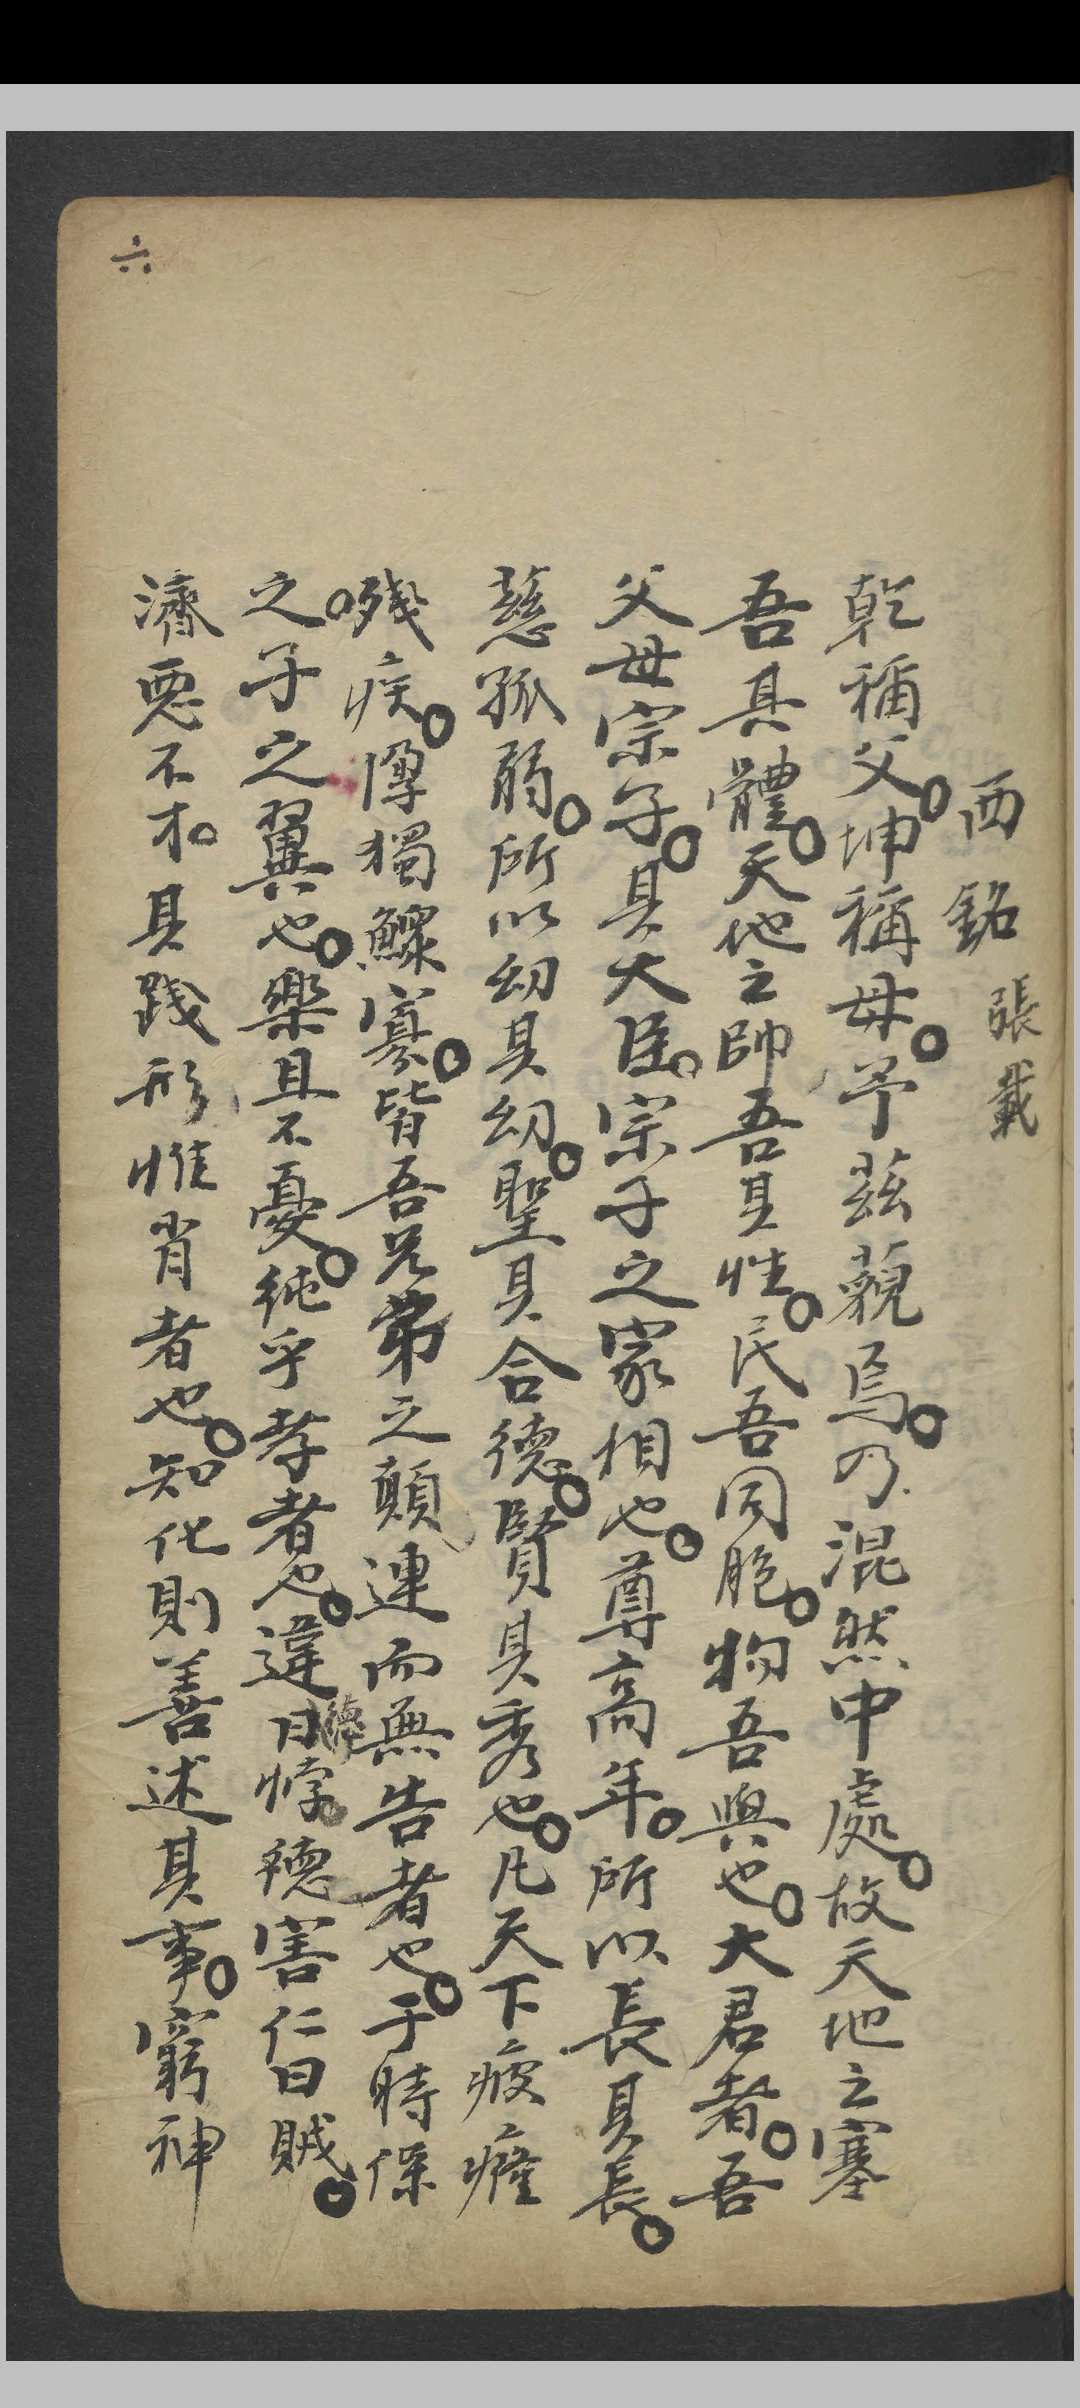 西銘 張載
乾稱父。坤稱母。予茲藐焉。乃混然中處。故天地之塞
吾其體。天地之帥吾其性。民吾同胞。物吾與也。大君者。吾
父母宗子。其大臣。宗子之家相也。尊高年。所以長其長。
慈孤弱。所以幼其幼。聖其合德。賢其秀也。凡天下疲癃
殘疾。惸獨鰥寡。皆吾兄弟之顛連而無告者也。于時保
之。子之翼也。樂且不憂。純乎孝者也。違曰悖德害仁曰賊。
濟惡不才。其踐形惟肖者也。知化則善述其事。窮神
六